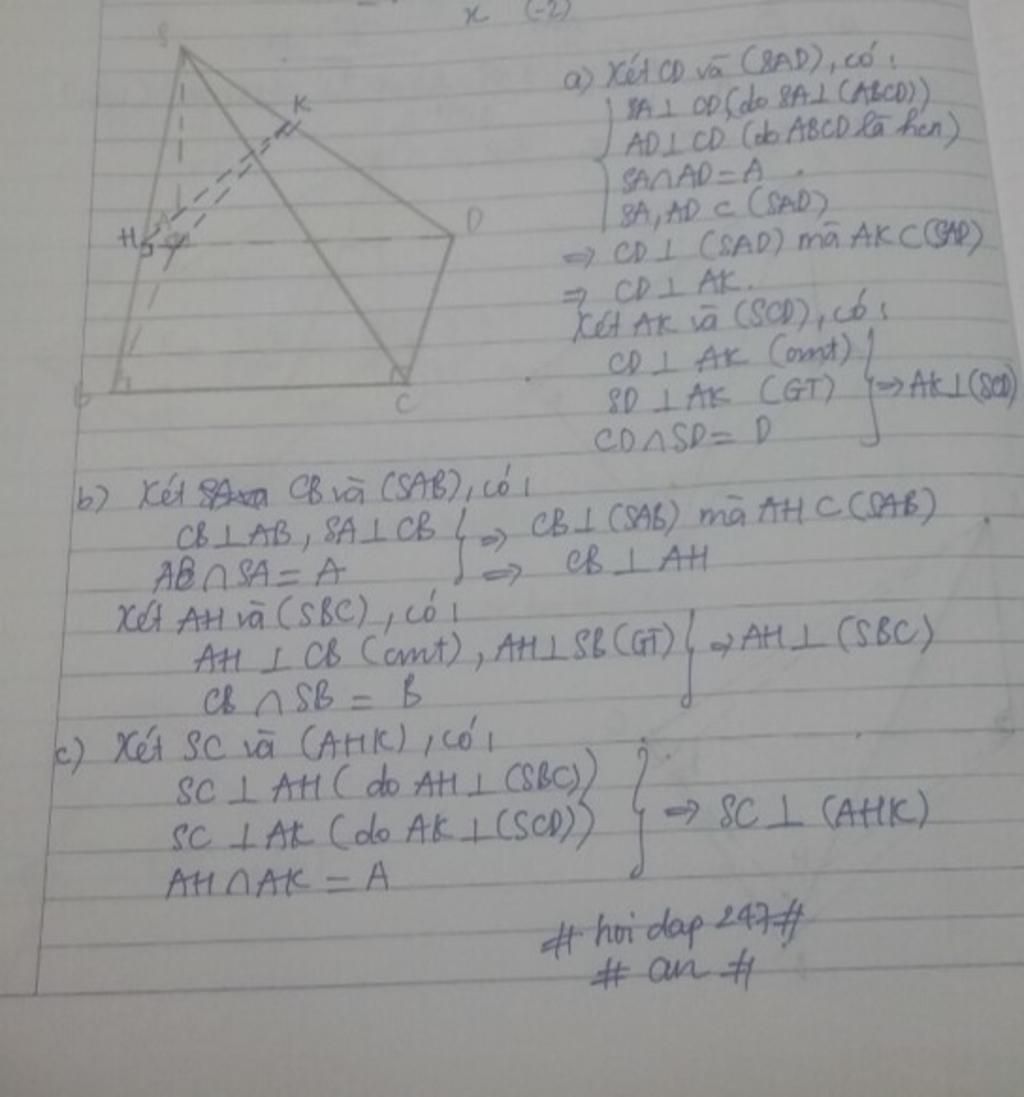 x (-2)
S
K
H
D
B
C
a) Xét CD và (SAD), có:
SA ⊥ CD (do SA ⊥ (ABCD))
AD ⊥ CD (do ABCD là hcn)
SA ∩ AD = A
SA, AD ⊂ (SAD)
⇒ CD ⊥ (SAD) mà AK ⊂ (SAD)
⇒ CD ⊥ AK.
Xét AK và (SCD), có:
CD ⊥ AK (cmt)
SD ⊥ AK (GT) ⇒ AK ⊥ (SCD)
CD ∩ SD = D
b) Xét CB và (SAB), có:
CB ⊥ AB, SA ⊥ CB ⇒ CB ⊥ (SAB) mà AH ⊂ (SAB)
AB ∩ SA = A ⇒ CB ⊥ AH
Xét AH và (SBC), có:
AH ⊥ CB (cmt), AH ⊥ SB (GT) ⇒ AH ⊥ (SBC)
CB ∩ SB = B
c) Xét SC và (AHK), có:
SC ⊥ AH (do AH ⊥ (SBC))
SC ⊥ AK (do AK ⊥ (SCD)) ⇒ SC ⊥ (AHK)
AH ∩ AK = A
# hoi dap 247 #
# an #